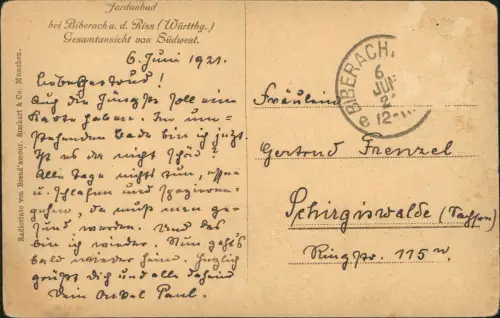 Jordanbad
bei Biberach a. d. Riss (Württbg.)
Gesamtansicht von Südwest.
6. Juni 1921.
Liebe Gertrud!
Auch die Jüngste soll eine
Karte haben. Im um-
stehenden Bade bin ich jetzt.
Ist es da nicht schön?
Alle Tage nichts tun, essen
u. schlafen und spazieren-
gehen, da muß man ge-
sund werden. Und das
bin ich wieder. Nun geht's
bald wieder heim. Herzlich
grüßt dich und alle daheim
Dein Onkel Paul.
Radiotinto von Brend'amour, Simhart & Co. München.
BIBERACH.
6
JUN
2
e 12-
Fräulein
Gertrud Frenzel
Schirgiswalde (Sachsen)
Ringstr. 115